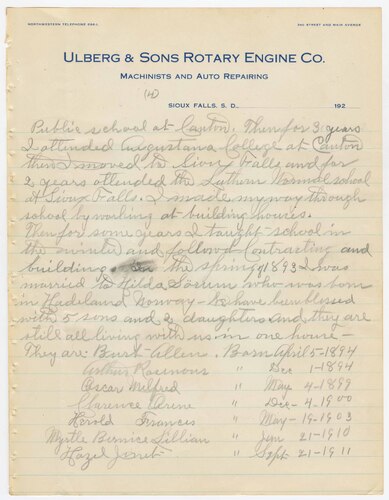 NORTHWESTERN TELEPHONE
2ND STREET AND MAIN AVENUE
ULBERG & SONS ROTARY ENGINE CO.
MACHINISTS AND AUTO REPAIRING
(4)
SIOUX FALLS, S. D., 192
Public school at Canton. Then for 3 years
I attended Augustana College at Canton
then I moved to Sioux Falls and for
2 years attended the Luthern Normal school
at Sioux Falls. I made my way through
school by working at building houses.
Then for some years I taught school in
the winter and follow Contracting and
building. In the spring of 1893 I was
married to Hilda Sorum who was born
in Hadeland Norway - We have been blessed
with 5 sons and 2 daughters and they are
still all living with us in one house -
They are: Burt Allen. Born April 5-1894
Arthur " Dec 1-1894
Oscar Wilfred " May 4-1899
Clarence " Dec - 4-1900
Herold Francis " May - 19-1903
Myrtle Bernice Lillian " Jun 21-1910
Hazel " Sept 21-1911